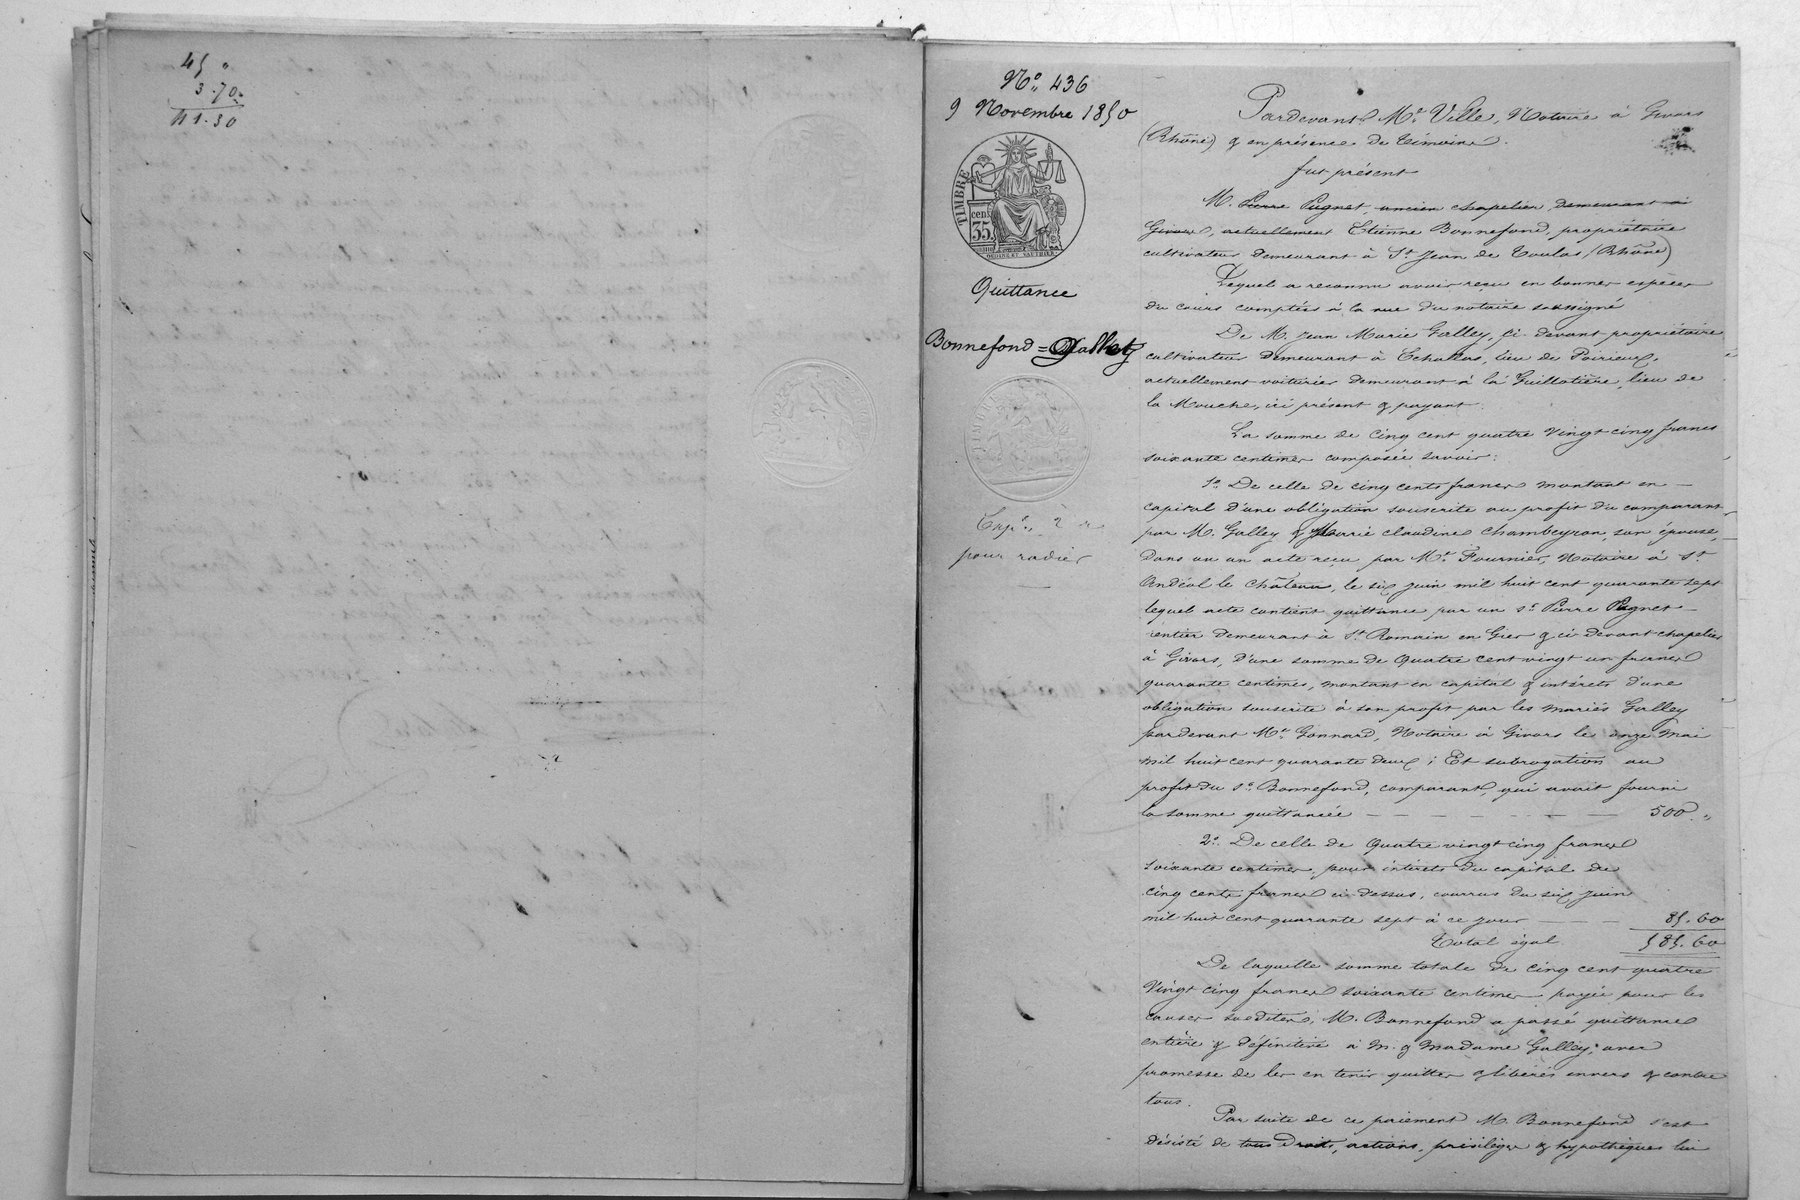 45 "
3.70
41.30
N° 436
9 Novembre 1850
TIMBRE
cen.
35
OUDINE ET VAUTHIER
Quittance
Bonnefond = Galley
Exp.
pour radier
Pardevant Me Ville, Notaire à Givors
(Rhône) & en présence de témoins.
fut présent
M. Pierre Pugnet, ancien chapelier, demeurant à
Givors, actuellement Etienne Bonnefond, propriétaire
cultivateur demeurant à St Jean de Toulas, (Rhône)
Lequel a reconnu avoir reçu en bonnes espèces
du cours comptées à la vue du notaire soussigné
De M. Jean Marie Galley, ci-devant propriétaire
cultivateur demeurant à Echalas, lieu de Poirieux,
actuellement voiturier demeurant à la Guillotière, lieu de
la Mouche, ici présent & payant.
La somme de cinq cent quatre vingt cinq francs
soixante centimes composée savoir:
1° De celle de cinq cents francs montant en
capital d'une obligation souscrite au profit du comparant
par M. Galley & Marie claudine Chambeyron, son épouse,
dans un un acte reçu par Me Fournier, Notaire à St
Andéol le château, le six juin mil huit cent quarante sept
lequel acte contient quittance par un sr Pierre Pugnet
rentier demeurant à St Romain en Gier & ci-devant chapelier
à Givors, d'une somme de quatre cent vingt un francs
quarante centimes, montant en capital & intérêts d'une
obligation souscrite à son profit par les mariés Galley
pardevant Me Gonnard, Notaire à Givors le onze mai
mil huit cent quarante deux; Et subrogation au
profit du sr Bonnefond, comparant, qui avait fourni
la somme quittancée — — — — — — — — 500 "
2° De celle de quatre vingt cinq francs
soixante centimes, pour intérêts du capital de
cinq cents francs ci-dessus, courus du six juin
mil huit cent quarante sept à ce jour — — 85.60
Total égal 585.60
De laquelle somme totale de cinq cent quatre
vingt cinq francs soixante centimes payée pour les
causes susdites, M. Bonnefond a passé quittance
entière & définitive à M. & Madame Galley, avec
promesse de les en tenir quittes & libérés envers & contre
tous.
Par suite de ce paiement M. Bonnefond s'est
désisté de tous droits, actions, privilèges & hypothèques lui